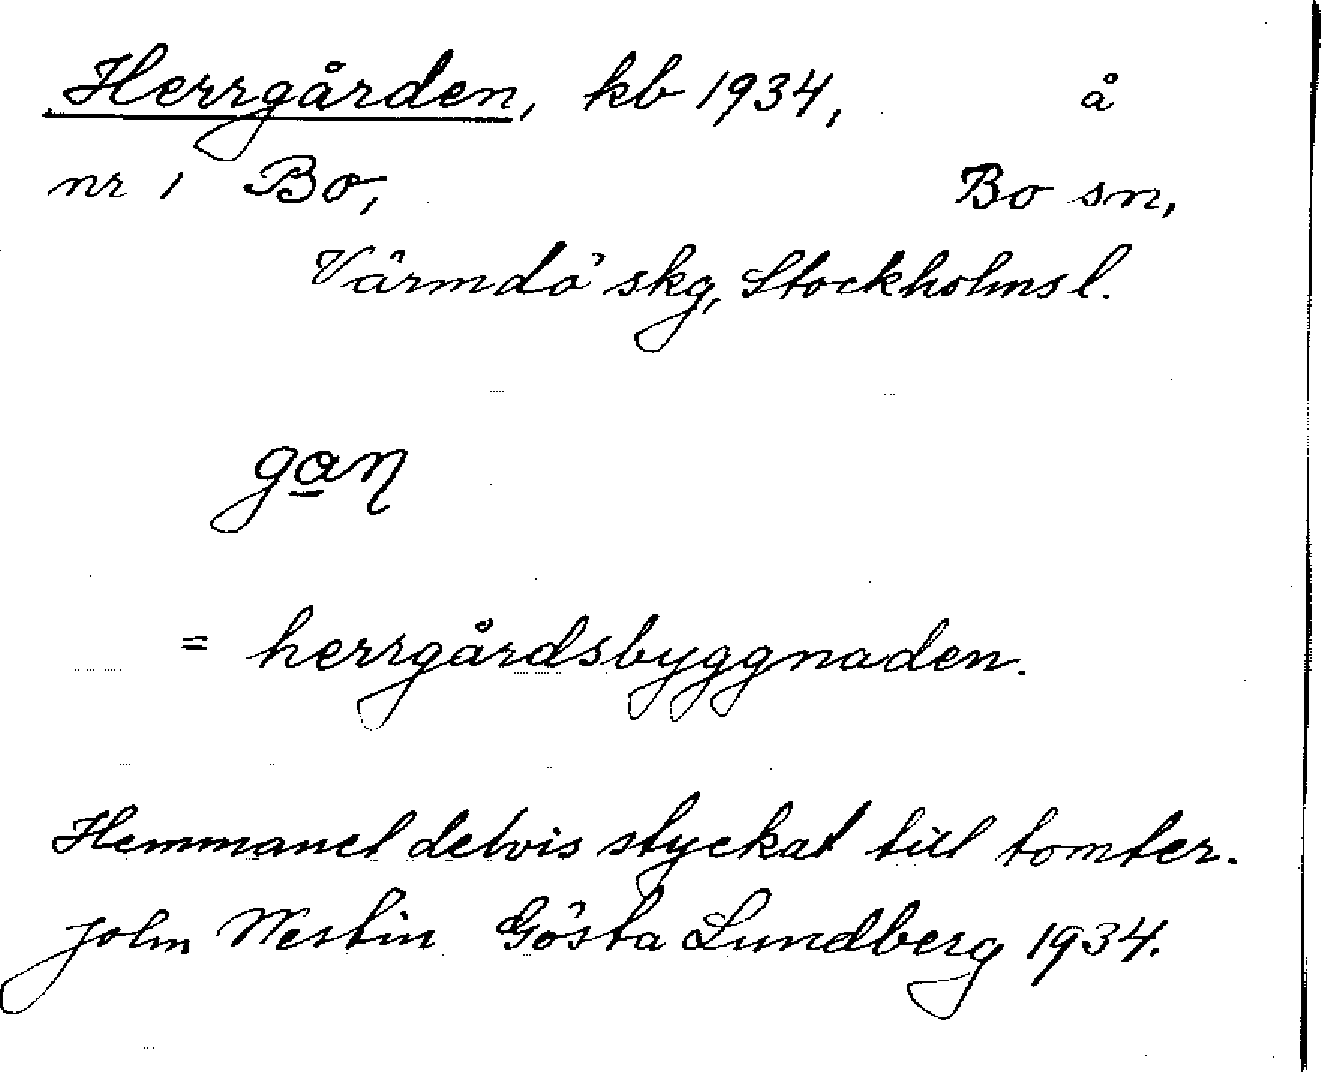 Herrgården, kb 1934, å
nr 1 Bo, Bo sn,
Värmdö skg, Stockholms l.
gaɳ
= herrgårdsbyggnaden.
Hemmanet delvis styckat till tomter.
John Westin Gösta Lundberg 1934.